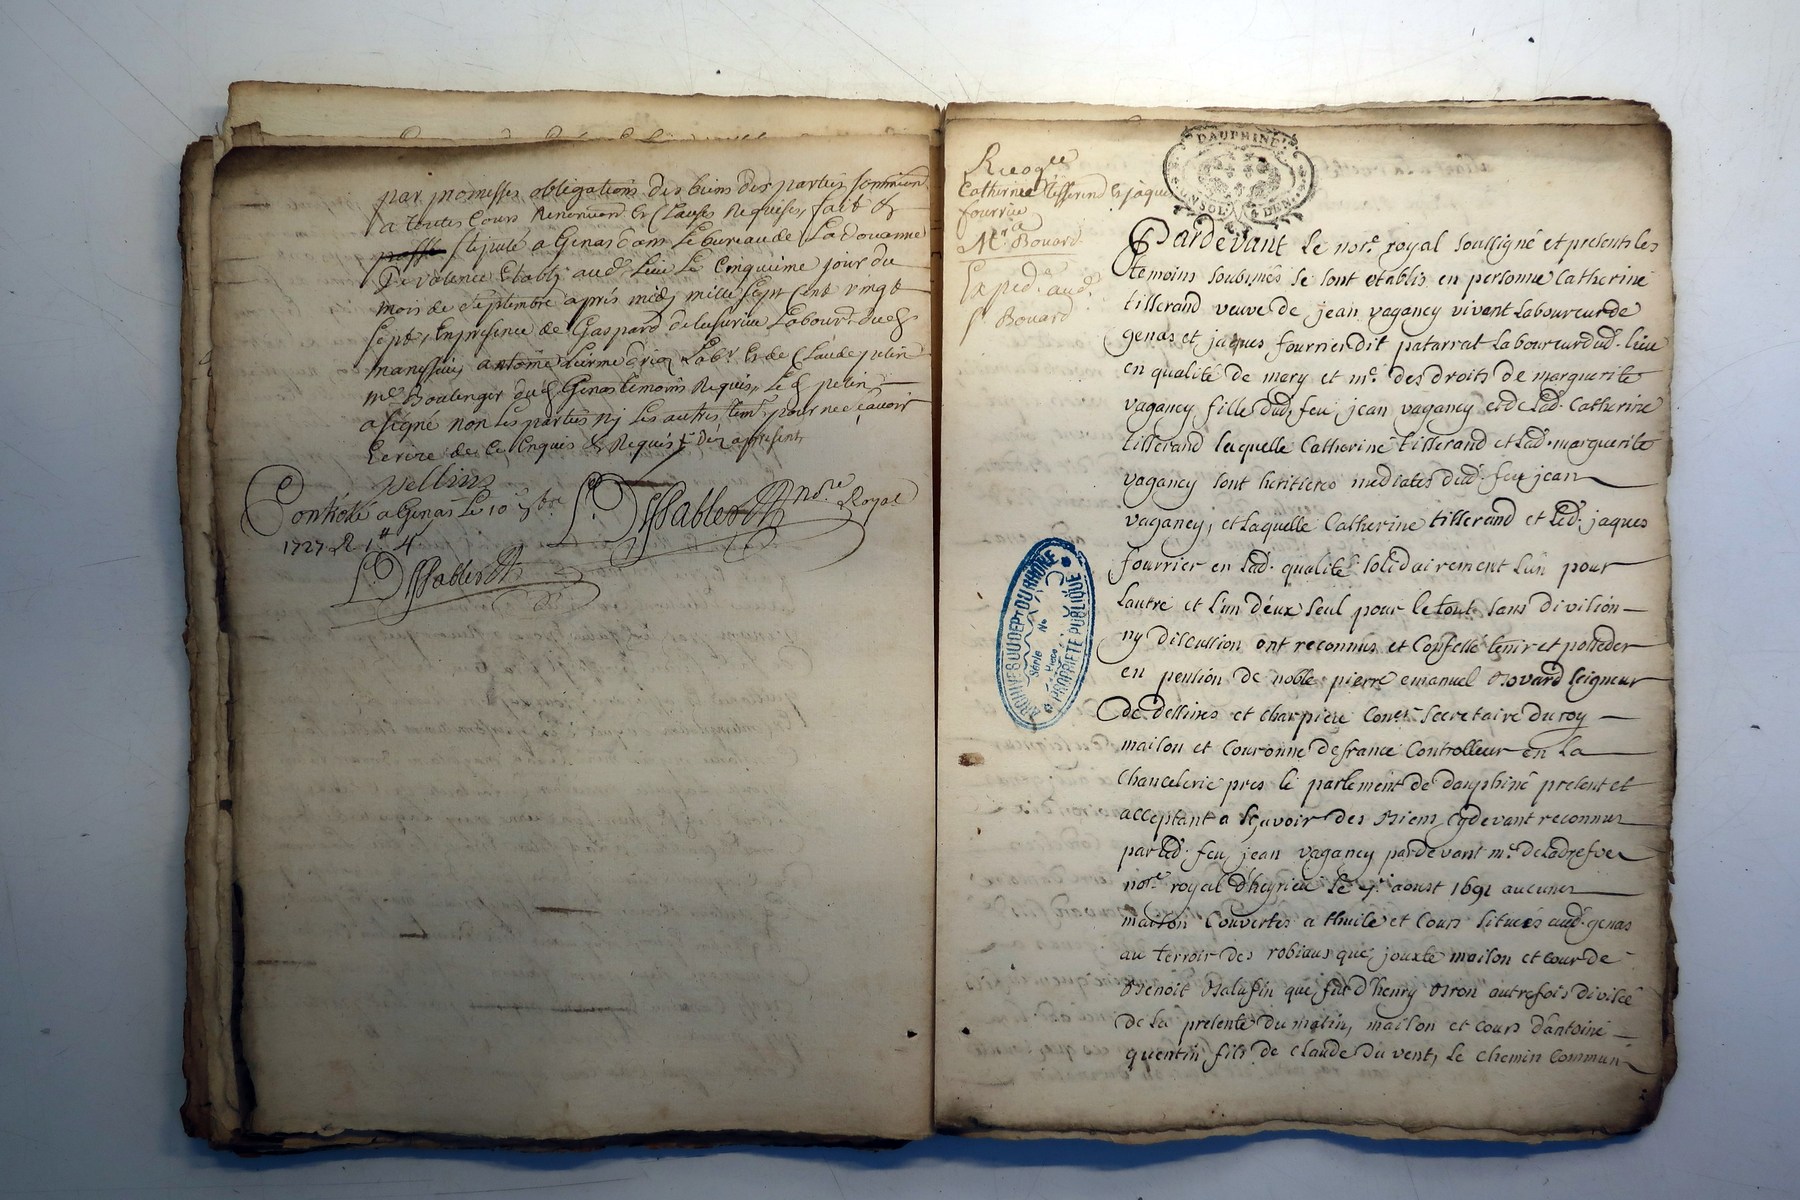 par promesses obligations des biens des parties soumissions
a toutes Cours Renonciaons Et Clauses Requises, fait et
passé stipulé a Genas dans Le bureau de La douanne
De valence Etably aud. Lieu Le Cinquieme jour du
mois de septembre après midy mille sept Cent vingt
sept, En presence de Gaspard Labour. dud.
manissieu, antoine Lab. Et de Claude pelin
me. Boulenger dud. Genas temoins Requis, Led. pelin
a signé non Les parties ny Les autres tem. pour ne sçavoir
Ecrire de ce Enquis et Requis
pellin
Controllé a Genas Le 10e 7bre
1727 R 1tt 4
Dessables Nore. Royal
Dessables
DAUPHINÉ
4 DEN.
Catherine Tillerend Et jaques
fourrier
Mr. Bouard
Exped. aud.
Sr. Bouard
Pardevant Le nore. royal soussigné et presents les
temoins soubsnés se sont etablis en personne Catherine
tillerand veuve de jean vagancy vivant Laboureur de
genas et jaques fourrier dit patarrat Laboureur dud. Lieu
en qualité de mary et me. des droits de marguerite
vagancy fille dud. feu jean vagancy et de Lad. Catherine
tillerand laquelle Catherine tillerand et Lad. marguerite
vagancy sont heritieres mediates dud. feu jean
vagancy, et Laquelle Catherine tillerand et Led. jaques
fourrier en Lad. qualité solidairement L'un pour
Lautre et L'un d'eux seul pour le tout sans division
ny discussion ont reconnus et Confessé tenir et posseder
en pension de noble pierre emanuel Bovard seigneur
De Dessines et Charpieu Coner. Secretaire du roy
maison et Couronne de france Controlleur en La
Chancelerie pres le parlement de dauphiné present et
acceptant a sçavoir des Biens cydevant reconnus
par Led. feu jean vagancy pardevant me.
nore. royal d'heyrieu Le 7e aoust 1691 aucunes
maison Couvertes a thuile et Cours situées aud. genas
au terroir des robiaus que jouxte maison et cour de
Benoit Balufin que fut d'henry Bron autrefois divisée
de La presente du matin, maison et Cours d'antoine
quentin fils de Claude du vent, Le Chemin Commun
ARCHIVES DU DEPT DU RHONE
Série No
Pièce
PROPRIETE PUBLIQUE